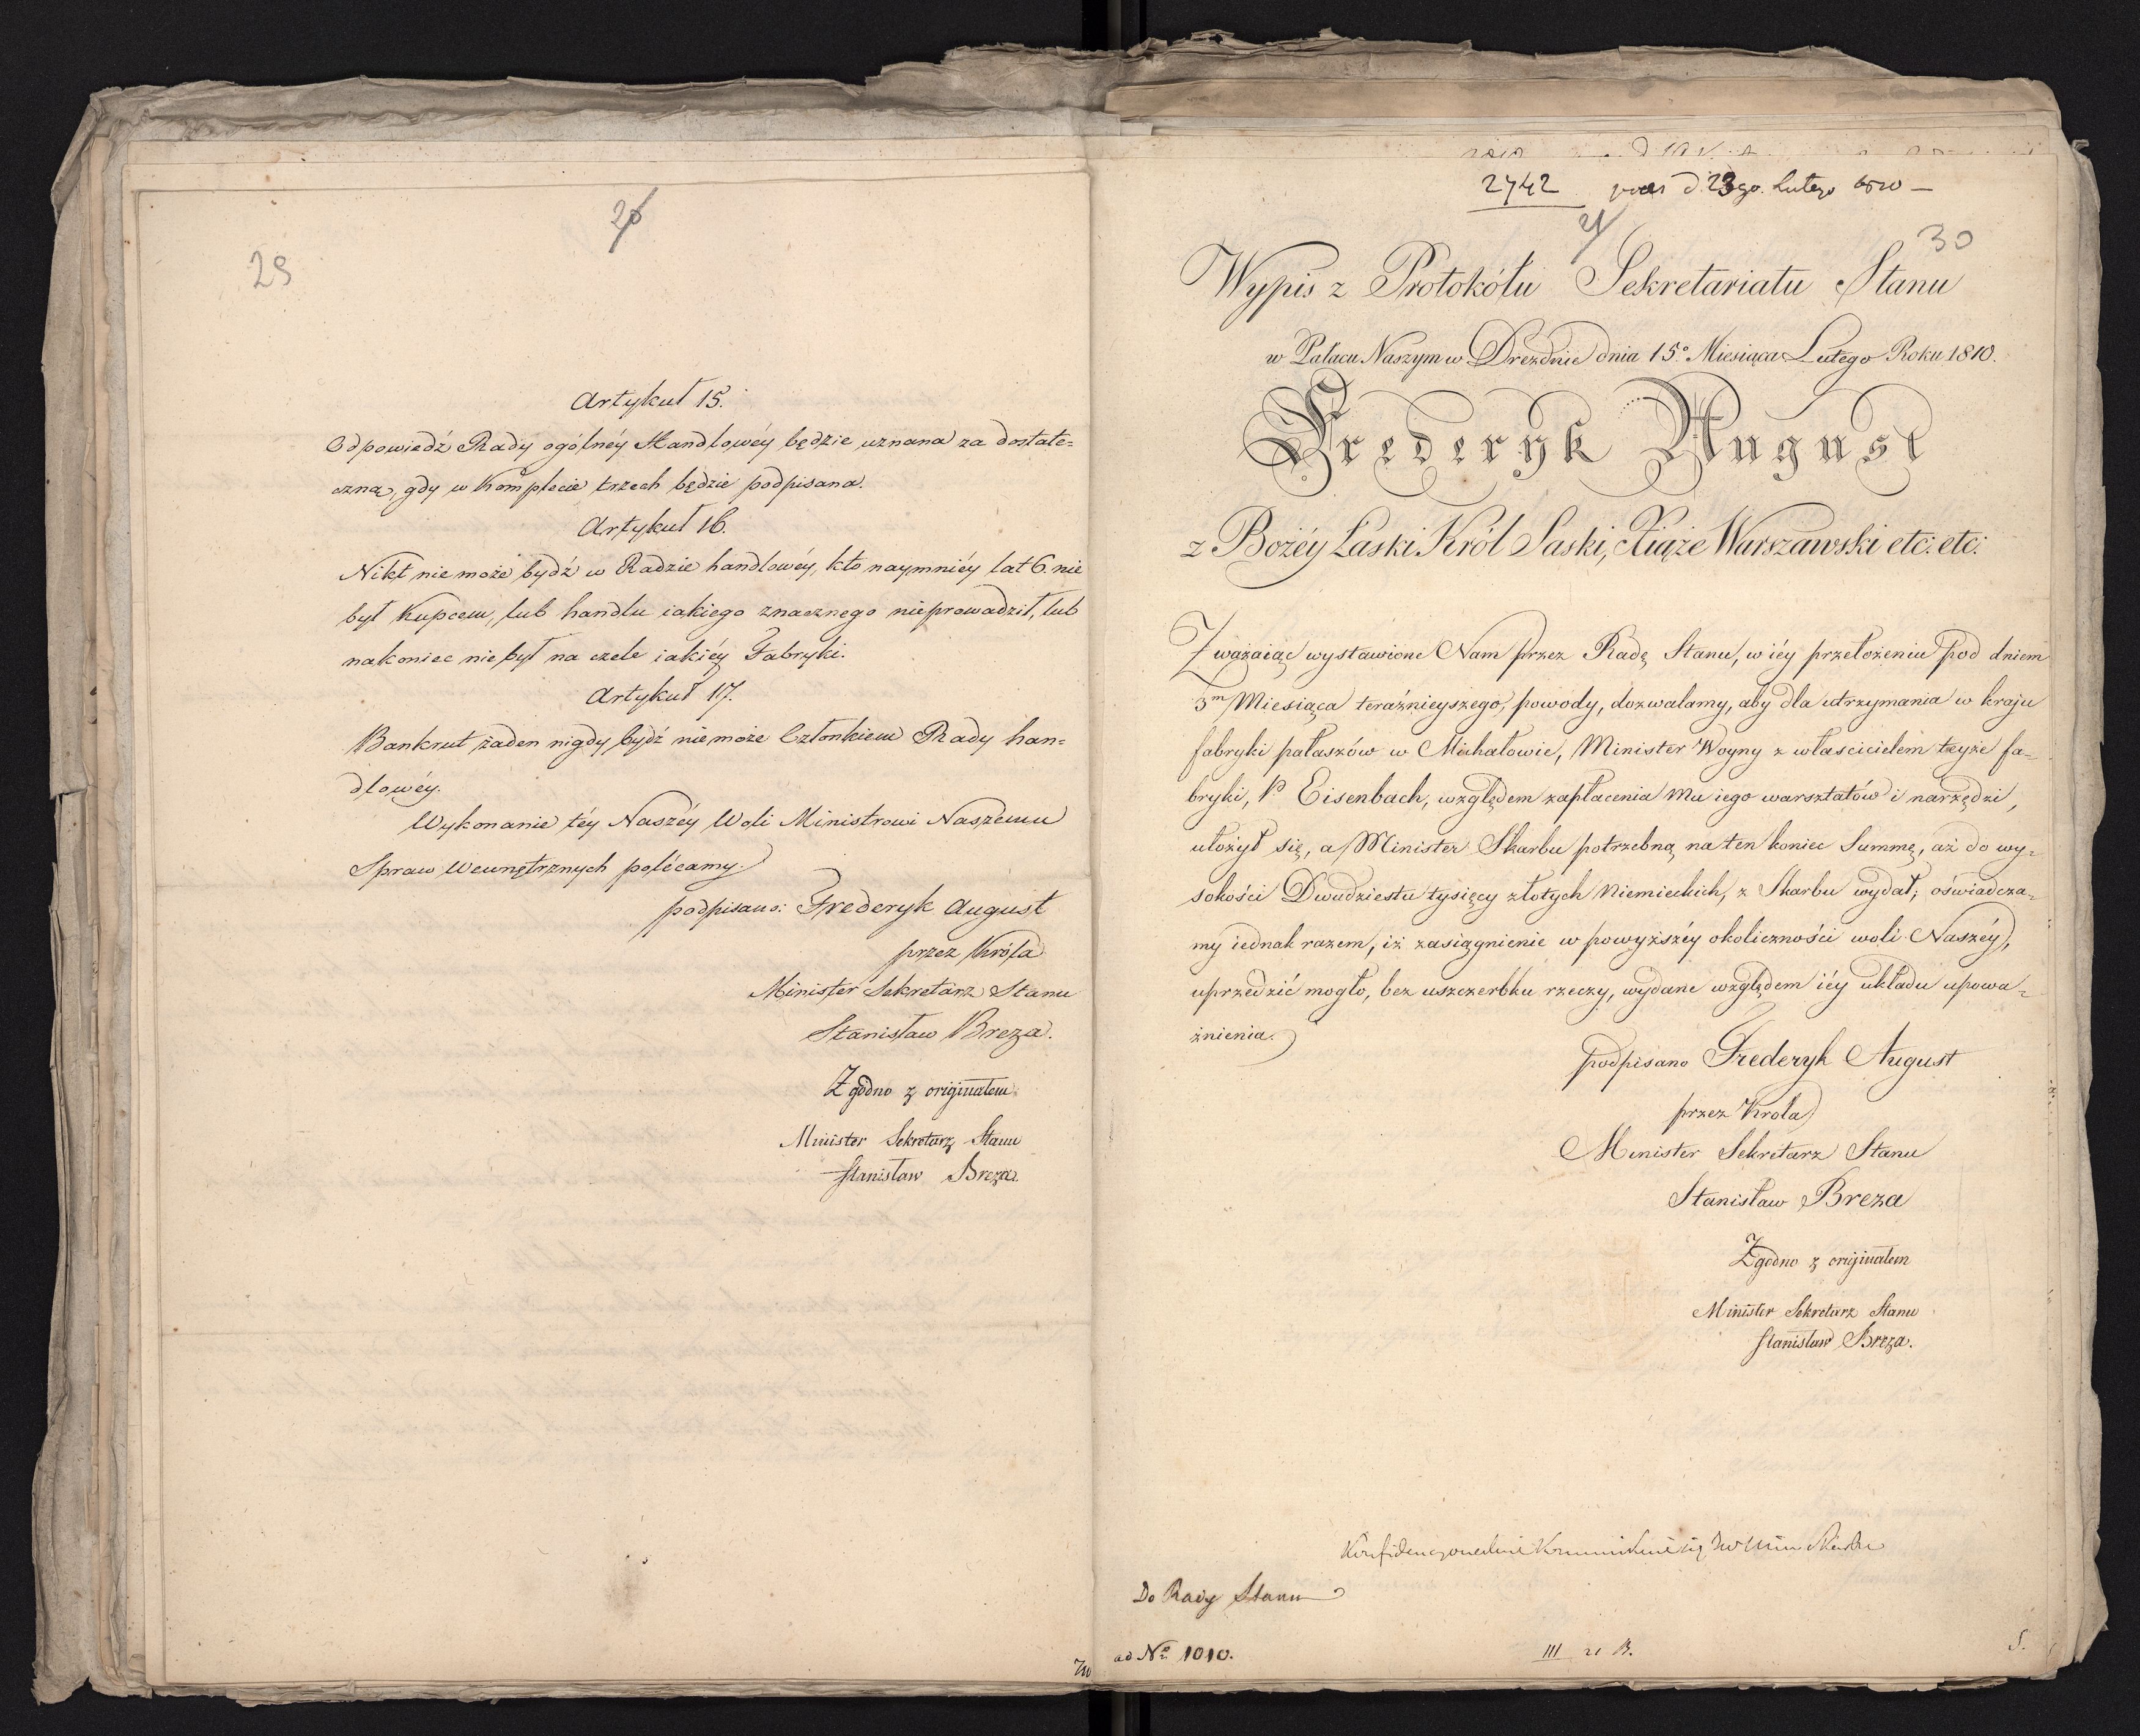 20
29
Artykuł 15.
Odpowiedź Rady ogólnéy Handlowéy będzie uznana za dostate=
czną, gdy w komplecie trzech będzie podpisana.
Artykuł 16.
Nikt nie może bydź w Radzie handlowéy, kto naymniéy lat 6. nie
był Kupcem, lub handlu iakiego znacznego nieprowadził, lub
nakoniec nie był na czele iakiéy Fabryki.
Artykuł 17.
Bankrut żaden nigdy bydź nie może Członkiem Rady han=
dlowéy.
Wykonanie téy Naszéy Woli Ministrowi Naszemu
Spraw Wewnętrznych polécamy.
podpisano: Frederyk August
przez Króla
Minister Sekretarz Stanu
Stanisław Breza.
Zgodno z originałem
Minister Sekretarz Stanu
Stanisław Breza.
2742 d. 23go. Lutego 1810 —
21
30
Wypis z Protokółu Sekretariatu Stanu
w Pałacu Naszym w Dreźdnie dnia 15º Miesiąca Lutego Roku 1810.
Frederyk August
z Bożéy Łaski Król Saski, Xiąże Warszawski etc: etc:
Zważaiąc wystawione Nam przez Radę Stanu, w iéy przełożeniu pod dniem
3m Miesiąca teraźnieyszego, powody, dozwalamy, aby dla utrzymania w kraju
fabryki pałaszów w Michałowie, Minister Woyny z właścicielem teyże fa=
bryki, P. Eisenbach, względem zapłacenia mu iego warsztatów i narzędzi,
ułożył się, a Minister Skarbu potrzebną na ten koniec Summę, aż do wy=
sokości Dwudziestu tysięcy złotych Niemieckich, z Skarbu wydał; oświadcza=
my iednak razem, iż zasiągnienie w powyższéy okoliczności woli Naszéy,
uprzedzić mogło, bez uszczerbku rzeczy, wydane względem iéy układu upowa=
żnienia.
podpisano Frederyk August
przez Króla
Minister Sekretarz Stanu
Stanisław Breza
Zgodno z originałem
Minister Sekretarz Stanu
Stanisław Breza.
Do Rady Stanu
ad Nº 1010.
III 21 B.
S.